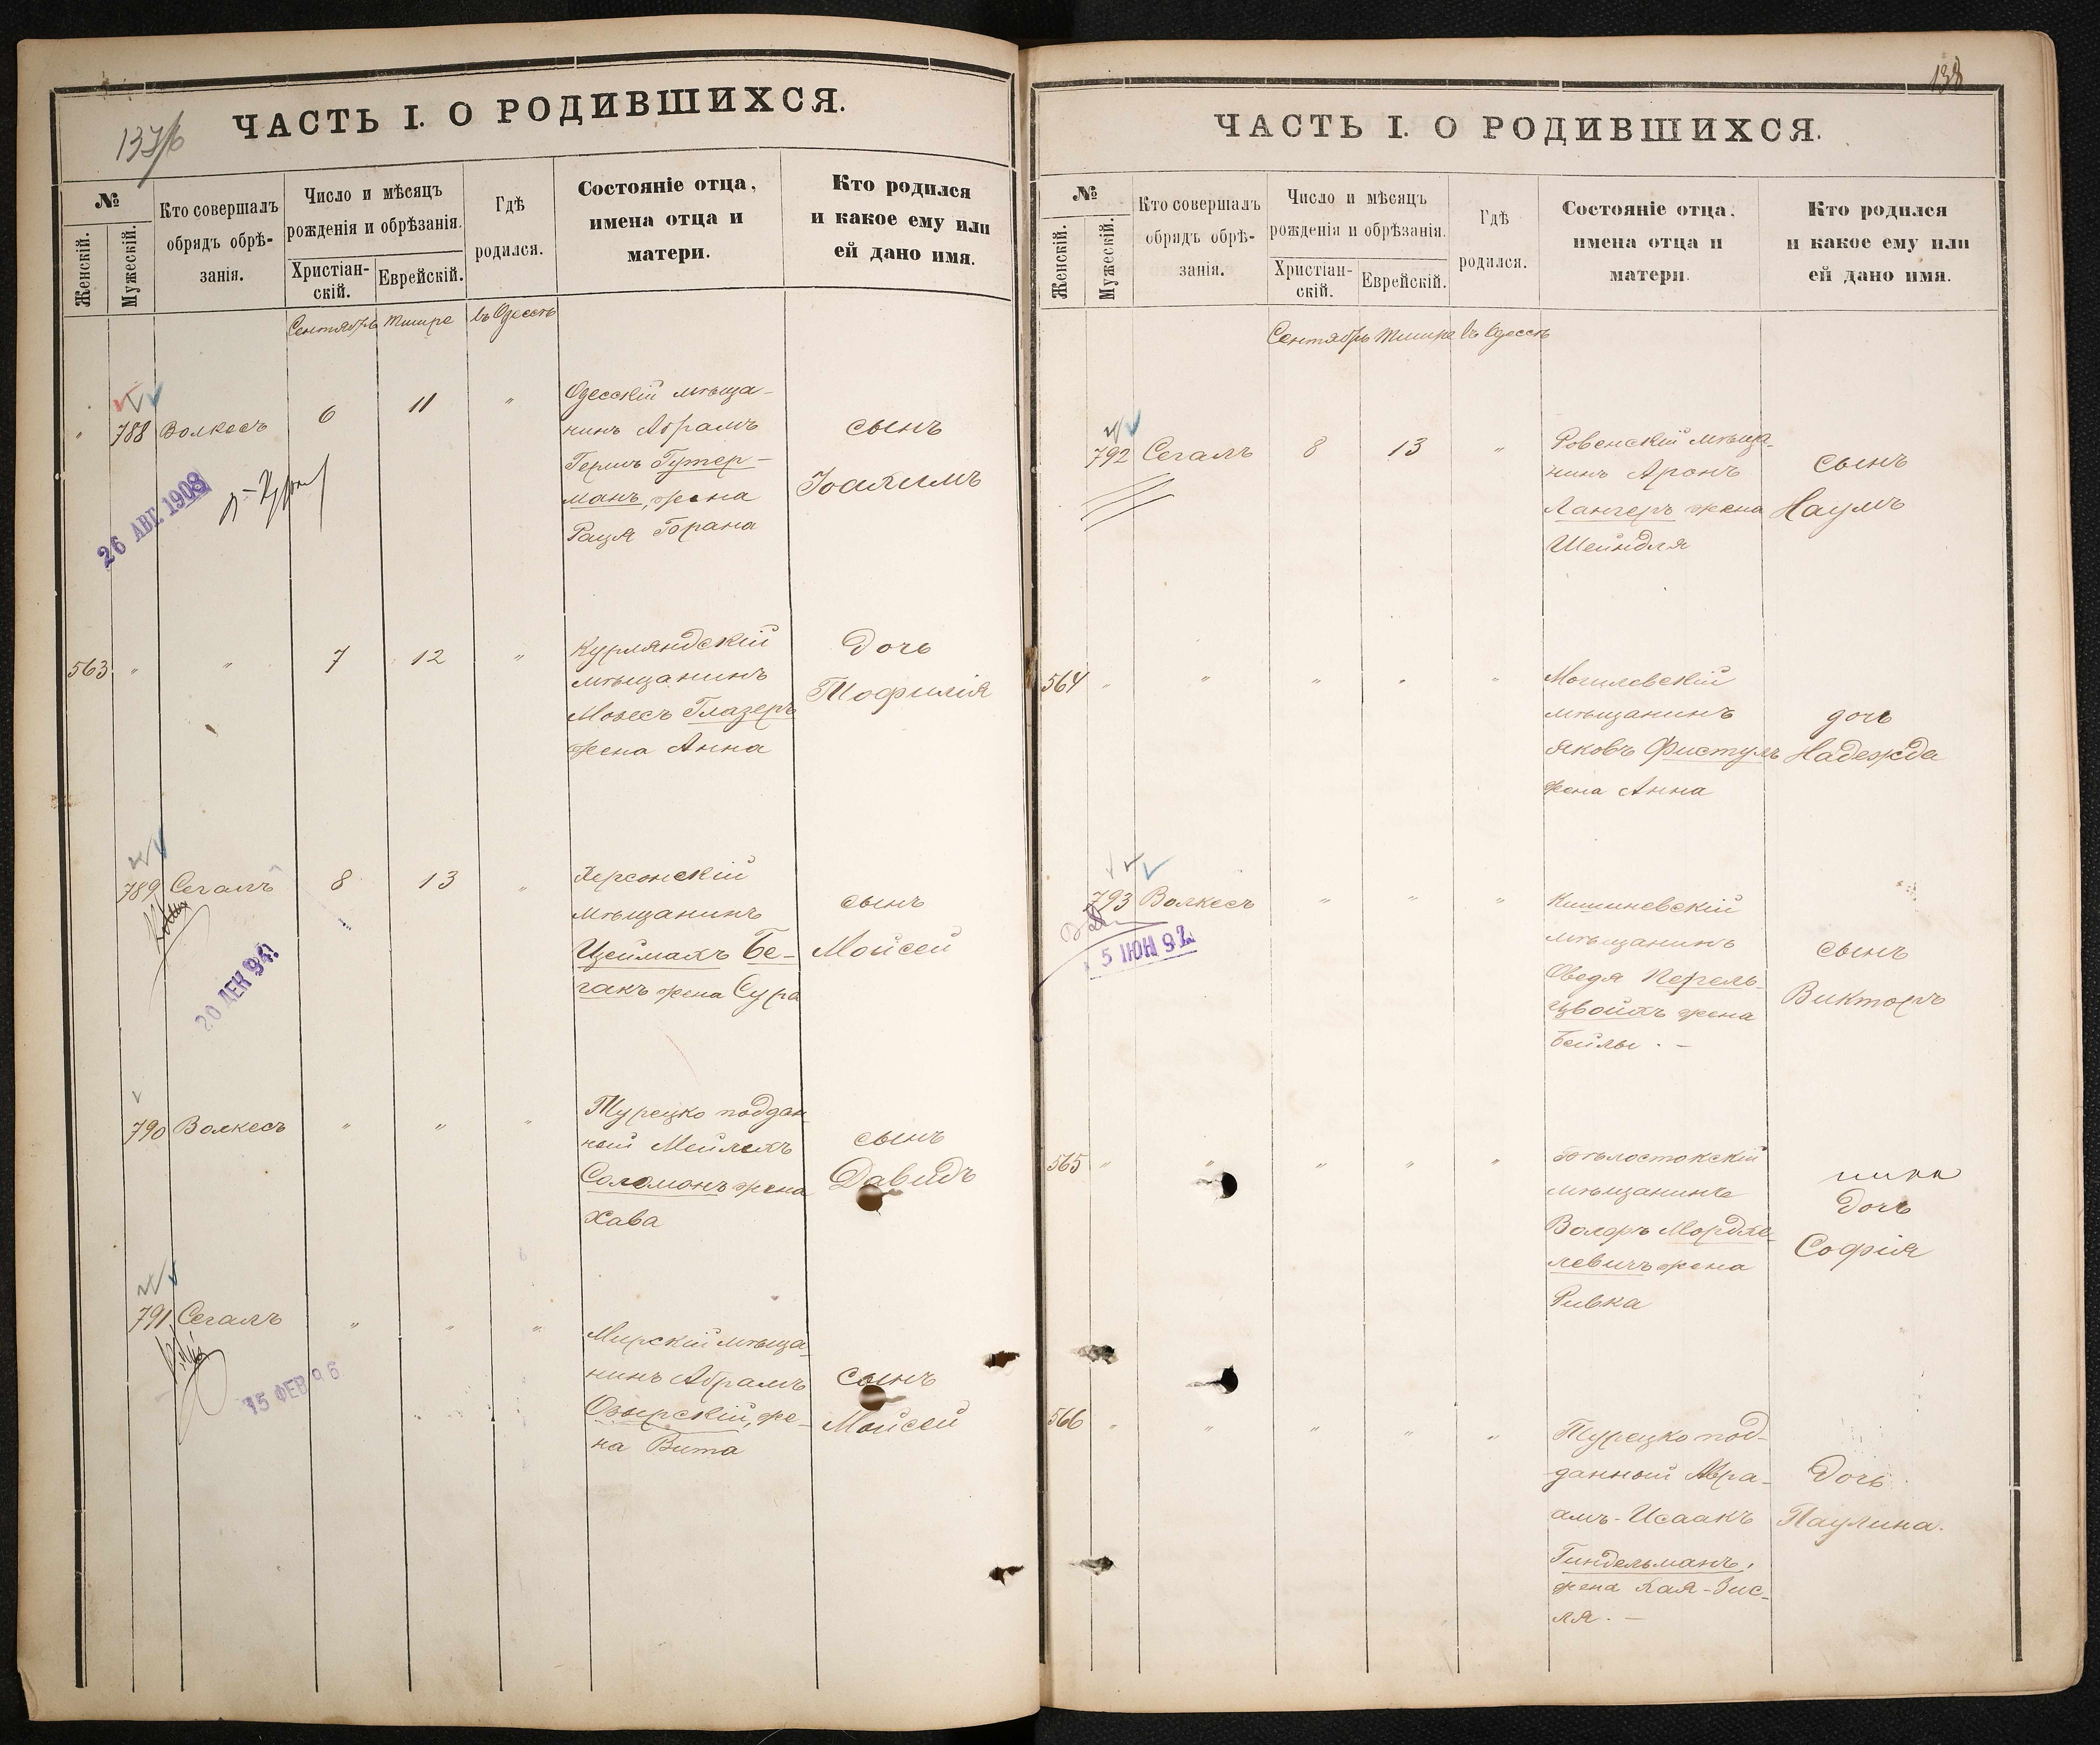 137/б
ЧАСТЬ I. О РОДИВШИХСЯ.
№
Женскій.
Мужескій.
Кто совершалъ
обрядъ обрѣ-
занія.
Число и мѣсяцъ
рожденія и обрѣзанія.
Христіан-
скій.
Еврейскій.
Гдѣ
родился.
Состояніе отца,
имена отца и
матери.
Кто родился
и какое ему или
ей дано имя.
Сентябрь Тишре въ Одессѣ
" 788 Волкесъ 6 11 "
Одесскій мѣща-
нинъ Абрамъ
Гершъ Гутер-
манъ, жена
Рация Горана
сынъ
Іоахимъ
26 АВГ. 1908
563 " " 7 12 "
Курляндскій
мѣщанинъ
Мовесъ Глазеръ
жена Анна
дочь
Теофилія
789 Сегалъ 8 13 "
Херсонскій
мѣщанинъ
Цеймахъ Бе-
гакъ жена Сура
сынъ
Мойсей
20 ДЕК 94
790 Волкесъ " " "
Турецко поддан
ный Мейлехъ
Соломонъ жена
Хава
сынъ
Давидъ
791 Сегалъ " " "
Мирскій мѣща-
нинъ Абрамъ
Озырскій, же-
на Вита
сынъ
Мойсей
15 ФЕВ 96
138
ЧАСТЬ I. О РОДИВШИХСЯ.
№
Женскій.
Мужескій.
Кто совершалъ
обрядъ обрѣ-
занія.
Число и мѣсяцъ
рожденія и обрѣзанія.
Христіан-
скій.
Еврейскій.
Гдѣ
родился.
Состояніе отца,
имена отца и
матери.
Кто родился
и какое ему или
ей дано имя.
Сентябрь Тишре въ Одессѣ
792 Сегалъ 8 13 "
Ровенскій мѣща-
нинъ Аронъ
Лангеръ жена
Шейндля
сынъ
Наумъ
564 " " " " "
Могилевскій
мѣщанинъ
Яковъ Фистуль
жена Анна
дочь
Надежда
793 Волкесъ " " "
Кишиневскій
мѣщанинъ
Оведя Перель-
цвойхъ жена
Бейлы . –
сынъ
Викторъ
5 ІЮН 92
565 " " " " "
Бѣлостокскій
мѣщанинъ
Волфъ Мордхе-
левичъ жена
Ривка
дочь
Софія
566 " " " " "
Турецко под-
данный Авра-
амъ-Исаакъ
Гиндельманъ,
жена Хая-Зис-
ля. –
дочь
Паулина.